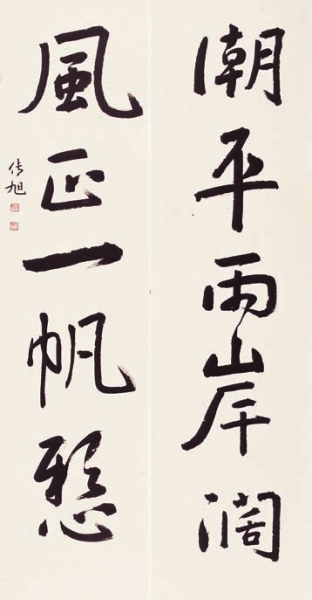 潮平兩岸濶
風正一帆懸
传旭